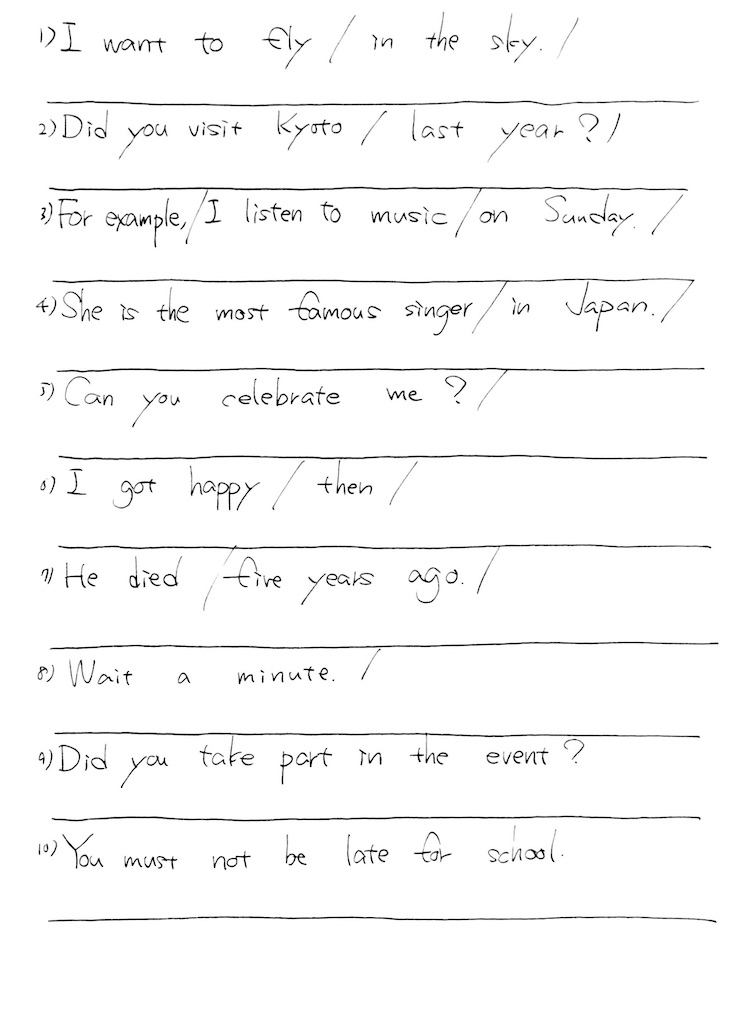 1) I want to fly / in the sky. /
2) Did you visit Kyoto / last year? /
3) For example, / I listen to music / on Sunday. /
4) She is the most famous singer / in Japan. /
5) Can you celebrate me? /
6) I got happy / then /
7) He died / five years ago. /
8) Wait a minute. /
9) Did you take part in the event?
10) You must not be late for school.